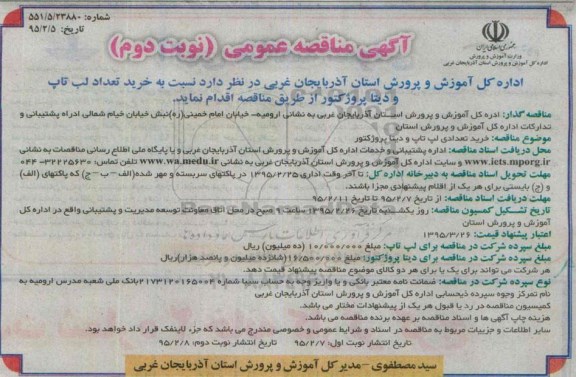 شماره: ۵۵۱/۵/۲۳۸۸۰
تاریخ: ۹۵/۲/۵
جمهوری اسلامی ایران
وزارت آموزش و پرورش
اداره کل آموزش و پرورش استان آذربایجان غربی
آگهی مناقصه عمومی (نوبت دوم)
اداره کل آموزش و پرورش استان آذربایجان غربی در نظر دارد نسبت به خرید تعداد لپ تاپ
و دیتا پروژکتور از طریق مناقصه اقدام نماید.
مناقصه گذار: ادره کل آموزش و پرورش استان آذربایجان غربی به نشانی ارومیه، خیابان امام خمینی(ره)نبش خیابان خیام شمالی ادراه پشتیبانی و
تدارکات اداره کل آموزش و پرورش استان
موضوع مناقصه: خرید تعدادی لپ تاپ و دیتا پروژکتور
محل دریافت اسناد مناقصه: اداره پشتیبانی و خدمات اداره کل آموزش و پرورش استان آذربایجان غربی و یا پایگاه ملی اطلاع رسانی مناقصات به نشانی
www.icts.mporg.ir و سایت اداره کل آموزش و پرورش استان آذربایجان غربی به نشانی www.wa.medu.ir تلفن تماس: ۳۲۲۲۵۶۳۰-۰۴۴
مهلت تحویل اسناد مناقصه به دبیرخانه اداره کل: تا آخر وقت اداری ۱۳۹۵/۲/۲۵ در پاکتهای سربسته و مهر شده(الف – ب – ج) که پاکتهای (الف)
و (ج) بایستی برای هر یک از اقلام پیشنهادی مجزا باشند.
مهلت دریافت اسناد مناقصه: از تاریخ ۹۵/۲/۷ تا تاریخ ۹۵/۲/۱۱
تاریخ تشکیل کمیسیون مناقصه: روز یکشنبه تاریخ ۱۳۹۵/۲/۲۶ ساعت ۹ صبح در محل اتاق معاونت توسعه مدیریت و پشتیبانی واقع در اداره کل
آموزش و پرورش استان
اعتبار پیشنهاد قیمت: ۱۳۹۵/۳/۲۶
مبلغ سپرده شرکت در مناقصه برای لپ تاپ: مبلغ ۱۰/۰۰۰/۰۰۰ (ده میلیون) ریال
مبلغ سپرده شرکت در مناقصه برای دیتا پروژکتور: مبلغ ۱۶/۵۰۰/۰۰۰(شانزده میلیون و پانصد هزار)ریال
هر شرکت می تواند برای یک یا برای هر دو کالای موضوع مناقصه پیشنهاد قیمت دهد.
نوع سپرده شرکت در مناقصه: ضمانت نامه معتبر بانکی و یا واریز وجه به حساب سیبا شماره ۲۱۷۳۱۲۰۱۶۵۰۰۲بانک ملی شعبه مدرس ارومیه به
نام تمرکز وجوه سپرده ذیحسابی اداره کل آموزش و پرورش استان آذربایجان غربی
کمیسیون مناقصه در رد یا قبول هر یک از پیشنهادات مختار می باشد.
هزینه چاپ آگهی ها و اسناد مناقصه بر عهده برنده مناقصه می باشد.
سایر اطلاعات و جزییات مربوط به مناقصه در اسناد و شرایط عمومی و خصوصی مندرج می باشد که جزء لاینفک قرار داد خواهد بود.
تاریخ انتشار نوبت اول: ۹۵/۲/۷ تاریخ انتشار نوبت دوم: ۹۵/۲/۸
سید مصطفوی – مدیر کل آموزش و پرورش استان آذربایجان غربی